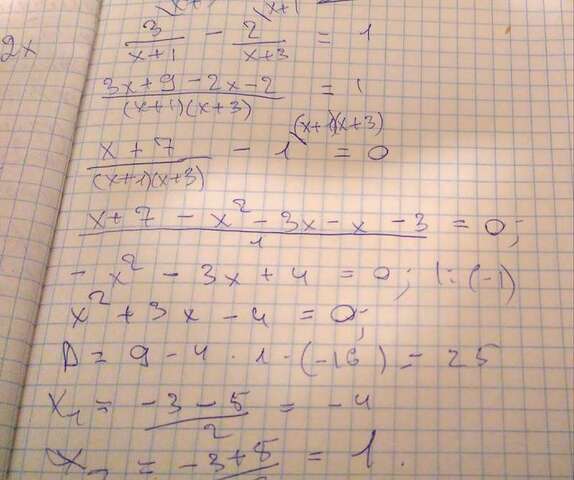 x+3 x+1
2x
3/(x+1) - 2/(x+3) = 1
(3x+9-2x-2)/((x+1)(x+3)) = 1
(x+7)/((x+1)(x+3)) - 1 (x+1)(x+3) = 0
(x+7 - x² - 3x - x - 3)/1 = 0;
- x² - 3x + 4 = 0; |: (-1)
x² + 3x - 4 = 0;
D = 9 - 4 · 1 · (-16) = 25
x₁ = (-3-5)/2 = -4
x₂ = -3+5 = 1.